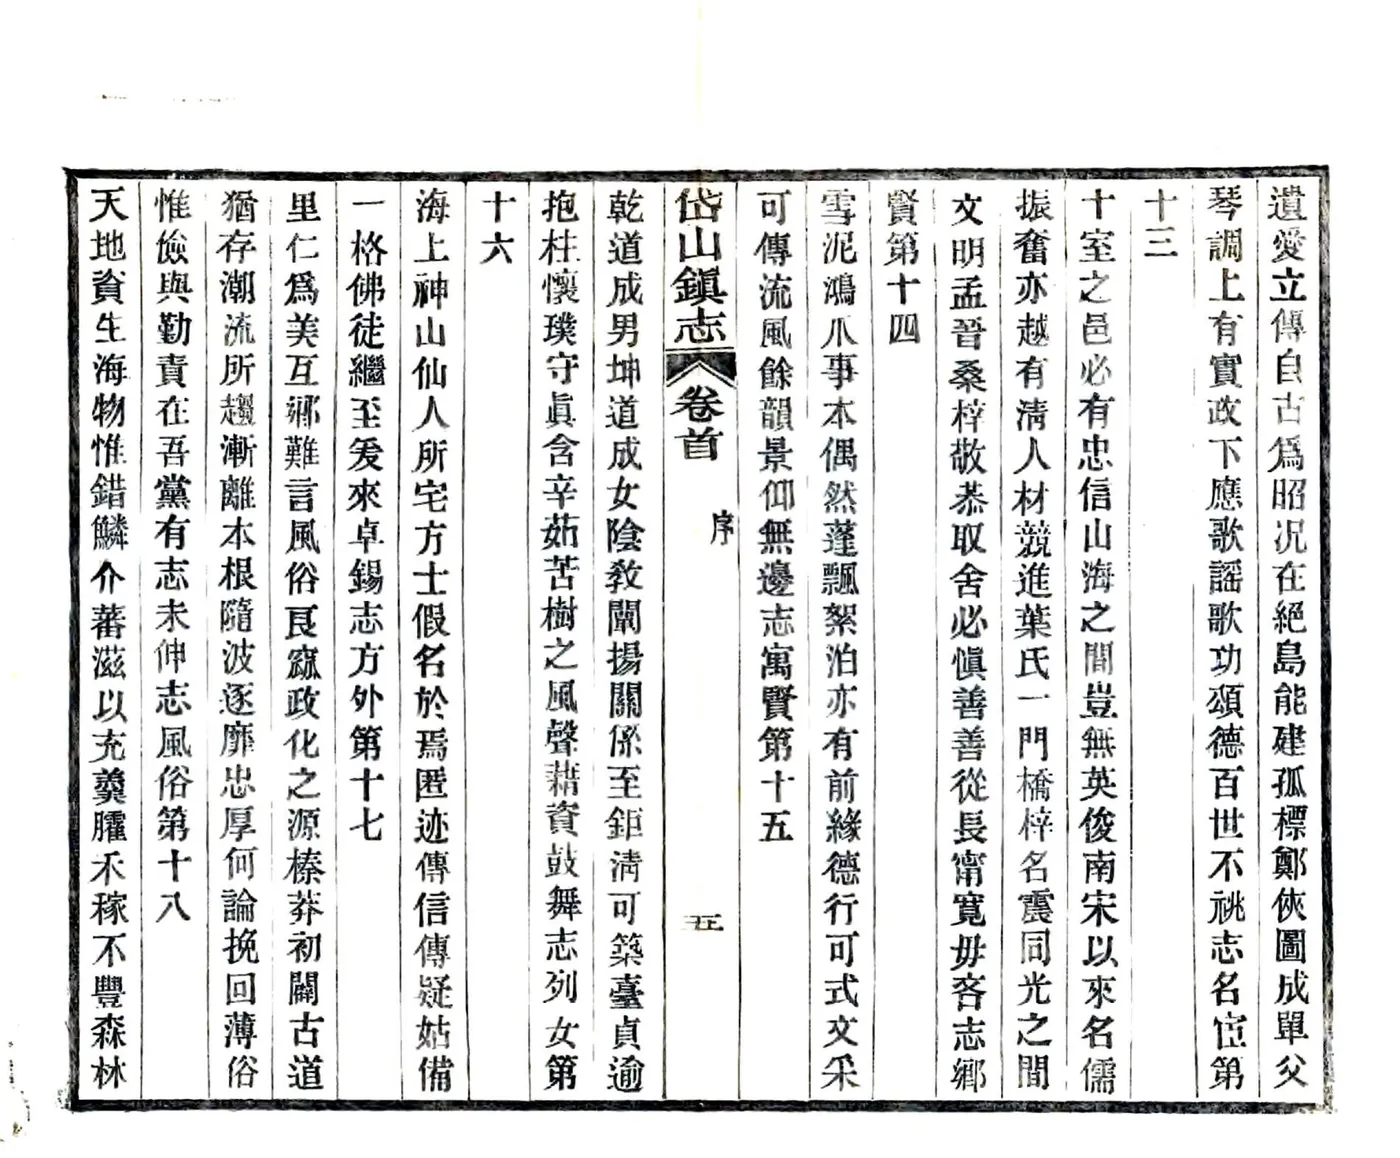 遺愛立傳自古爲昭况在絕島能建孤標鄭俠圖成單父
琴調上有實政下應歌謠歌功頌德百世不祧志名宦第
十三
十室之邑必有忠信山海之間豈無英俊南宋以來名儒
振奮亦越有淸人材競進葉氏一門橋梓名震同光之間
文明孟晉桑梓敬恭取舍必愼善善從長甯寛毋吝志鄉
賢第十四
雪泥鴻爪事本偶然蓬飄絮泊亦有前緣德行可式文采
可傳流風餘韻景仰無邊志寓賢第十五
岱山鎭志 卷首 序 五
乾道成男坤道成女陰敎闡揚關係至鉅淸可築臺貞逾
抱柱懷璞守眞含辛茹苦樹之風聲藉資鼓舞志列女第
十六
海上神山仙人所宅方士假名於焉匿迹傳信傳疑姑備
一格佛徒繼至爰來卓錫志方外第十七
里仁爲美互鄉難言風俗良窳政化之源榛莽初闢古道
猶存潮流所趨漸離本根隨波逐靡忠厚何論挽回薄俗
惟儉與勤責在吾黨有志未伸志風俗第十八
天地資生海物惟錯鱗介蕃滋以充羹臛禾稼不豐森林